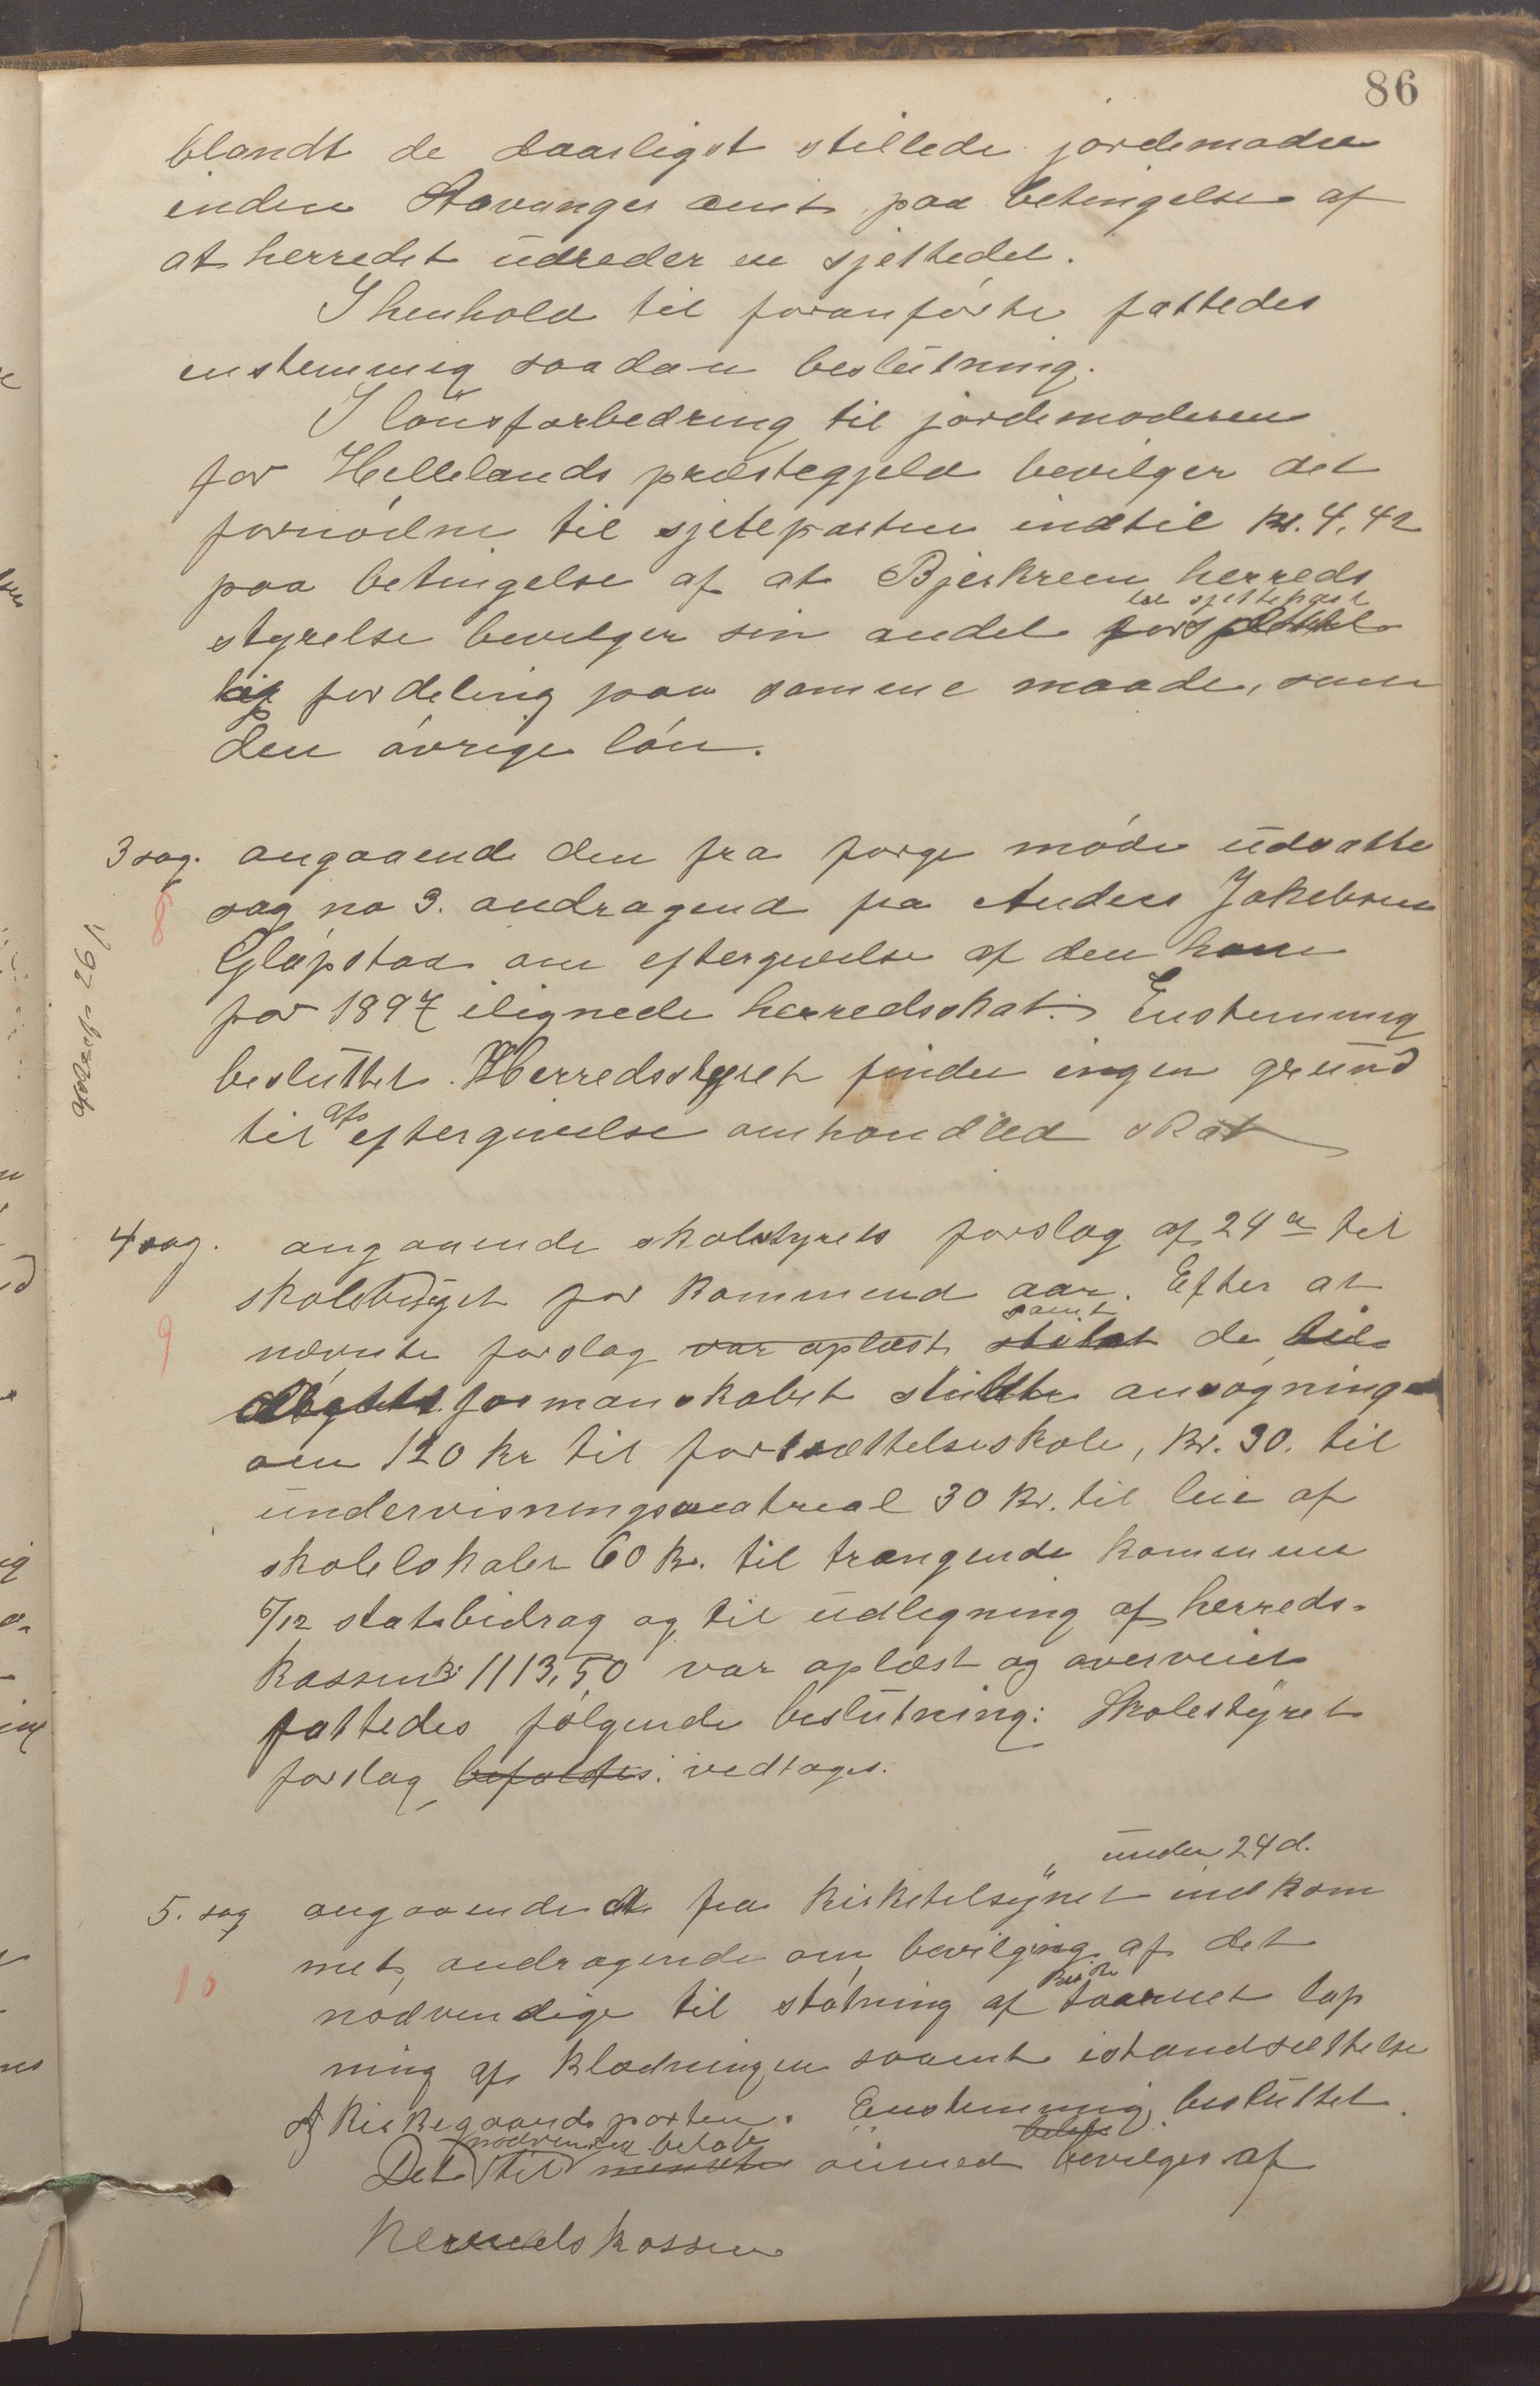 86
blandt de daarligst stillede jordemødre
inden Stavanger amt paa betingelse af
at herredet udreder en sjettedel.
I henhold til foranførte fattedes
enstemmig saadan beslutning.
I lønsforbedring til jordemoderen
for Hellelands præstegjeld bevilger det
fornødne til sjetteparten indtil kr. 4,42
paa betingelse af at Bjerkrem herreds
en sjettepart
styrelse bevilger sin andel
fordeling paa samme maade, som
den øvrige løn.
3 sag. angaaende den fra forge møde udsatte
8
sag no 3. andragend fra Anders Jakobsen
Gløpstad om eftergivelse af den ham
for 1897 ilignede herredsskat. Enstemmig
besluttet. Herredsstyret finder ingen grund
til at eftergivelse omhandled skat
afskrift 26/1
4 sag. angaaende skolestyrets forslag af 24 d til
skolebudget for kommend aar. Efter at
samt
9
nævnte forslag var oplæst de
formanskabet stillte ansøgning
om 120 kr til fortsættelseskole, kr. 30. til
undervisningsmatreal 30 kr. til leie af
skolelokaler 60 kr. til trængende kommune
5/12 statsbidrag og til udligning af herreds-
kassen kr 1113,50 var oplæst og overveiet
fattedes følgende beslutning: Skolestyret
forslag vedtages.
under 24 d.
5. sag angaaende fra kirketilsynet indkom
10
met andragende om bevilging af det
nødvendige til støtning af kirketaarnet tap
ning af klædningen saamt istandsættelse
af kirkegaardsporten. Enstemmig besluttet
nødvendige beløb
Det til øiemed bevilges af
herredskassen